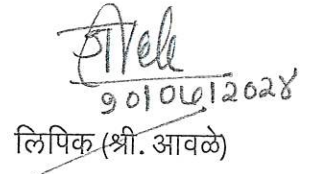 १०/०७/२०२४
लिपिक (श्री. आवळे)